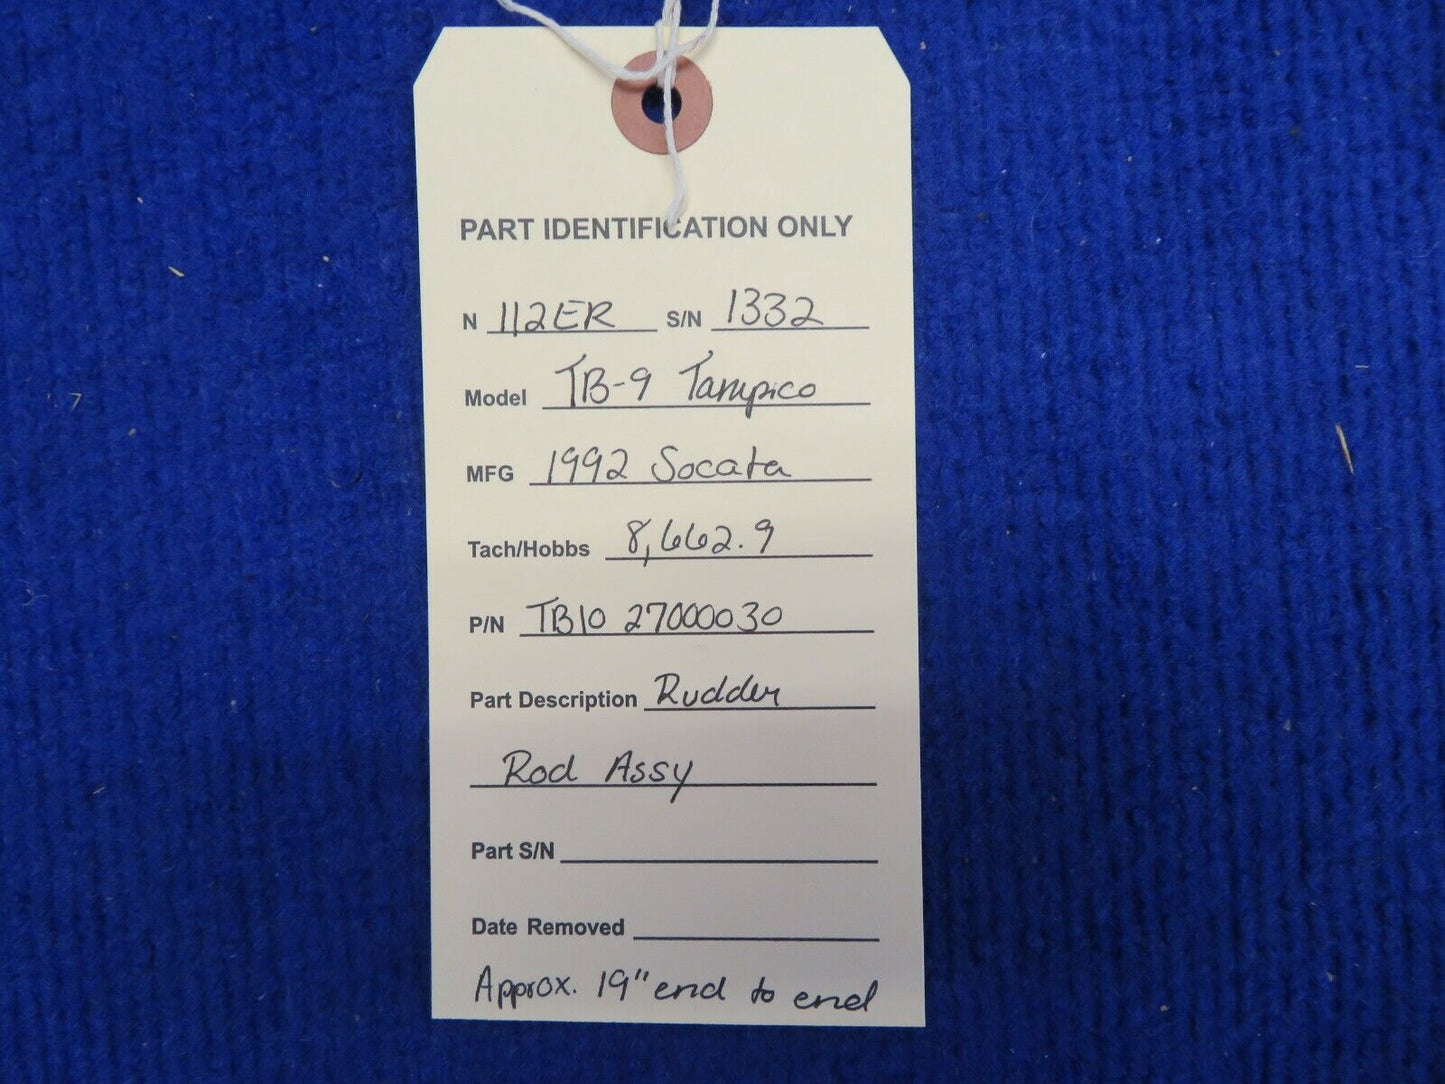 PART IDENTIFICATION ONLY
N 112ER S/N 1332
Model TB-9 Tampico
MFG 1992 Socata
Tach/Hobbs 8,662.9
P/N TB10 27000030
Part Description Rudder
Rod Assy
Part S/N
Date Removed
Approx. 19" end to end